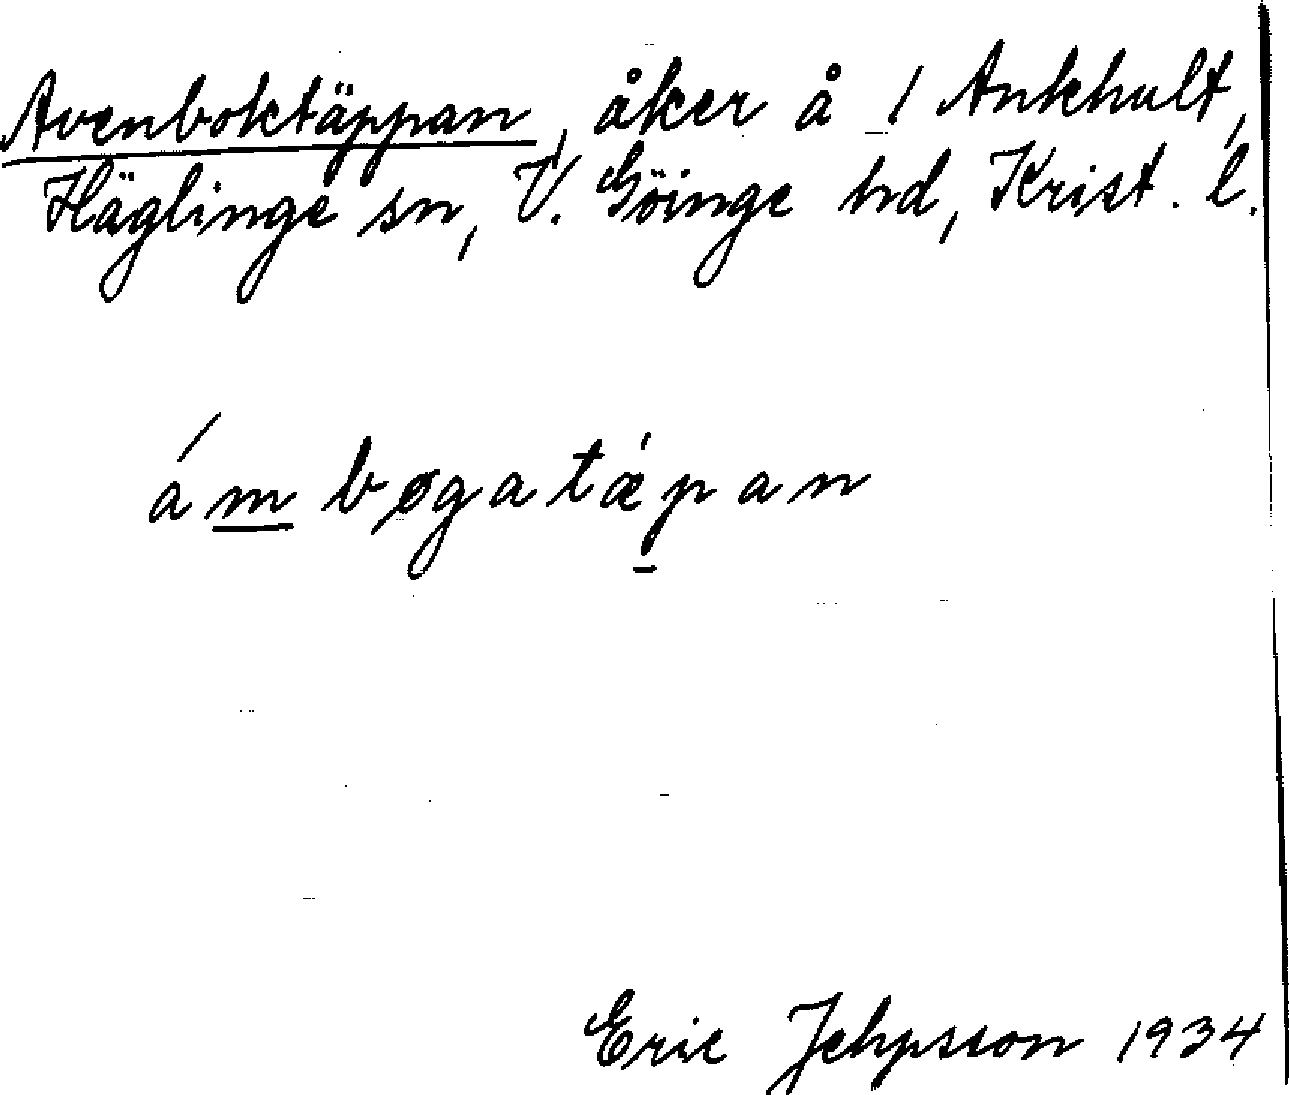 Avenboktäppan, åker å 1 Ankhult,
Häglinge sn, V. Göinge hd, Krist. l.
ámbøgatǽpan
Eric Jehpsson 1934